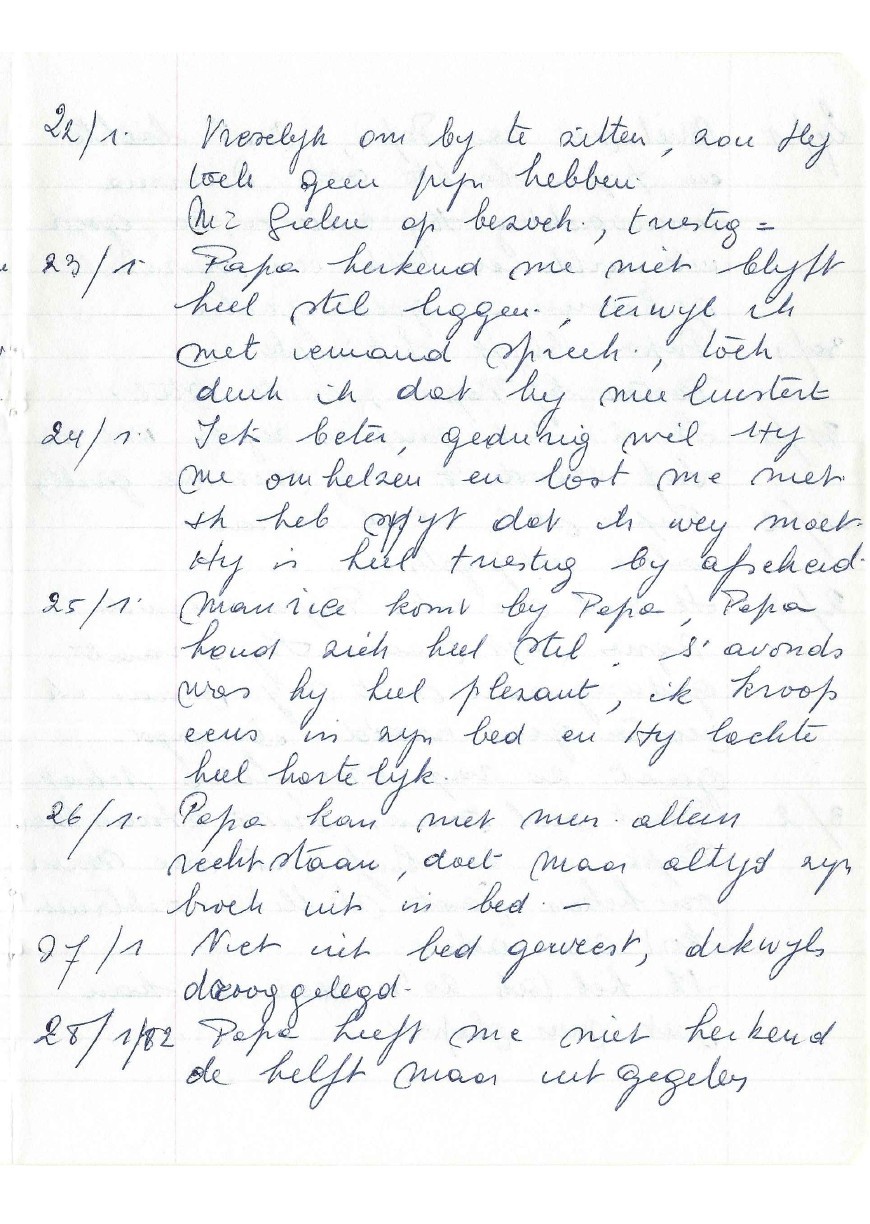 22/1. Vreselyk om by te zitten, zou Hy
toch geen pijn hebben.
Mr Gielen op bezoek, triestig =
23/1. Papa herkend me niet blyft
heel stil liggen, terwyl ik
met iemand spreek, toch
denk ik dat hy meeluistert
24/1. Iets beter, gedurig wil Hy
me omhelzen en lost me niet.
Ik heb spyt dat ik wey moet.
Hy is heel triestig by afscheid.
25/1. Maurice komt by Papa, Papa
houd zich heel stil. S' avonds
was hy heel plezant, ik kroop
eens in zyn bed en Hy lachte
heel hartelyk.
26/1. Papa kan niet meer alleen
recht staan, doet maar altyd zyn
broek uit in bed. —
27/1 Niet uit bed geweest, dikwyls
droog gelegd.
28/1/82 Papa heeft me niet herkend
de helft maar uit gegeten